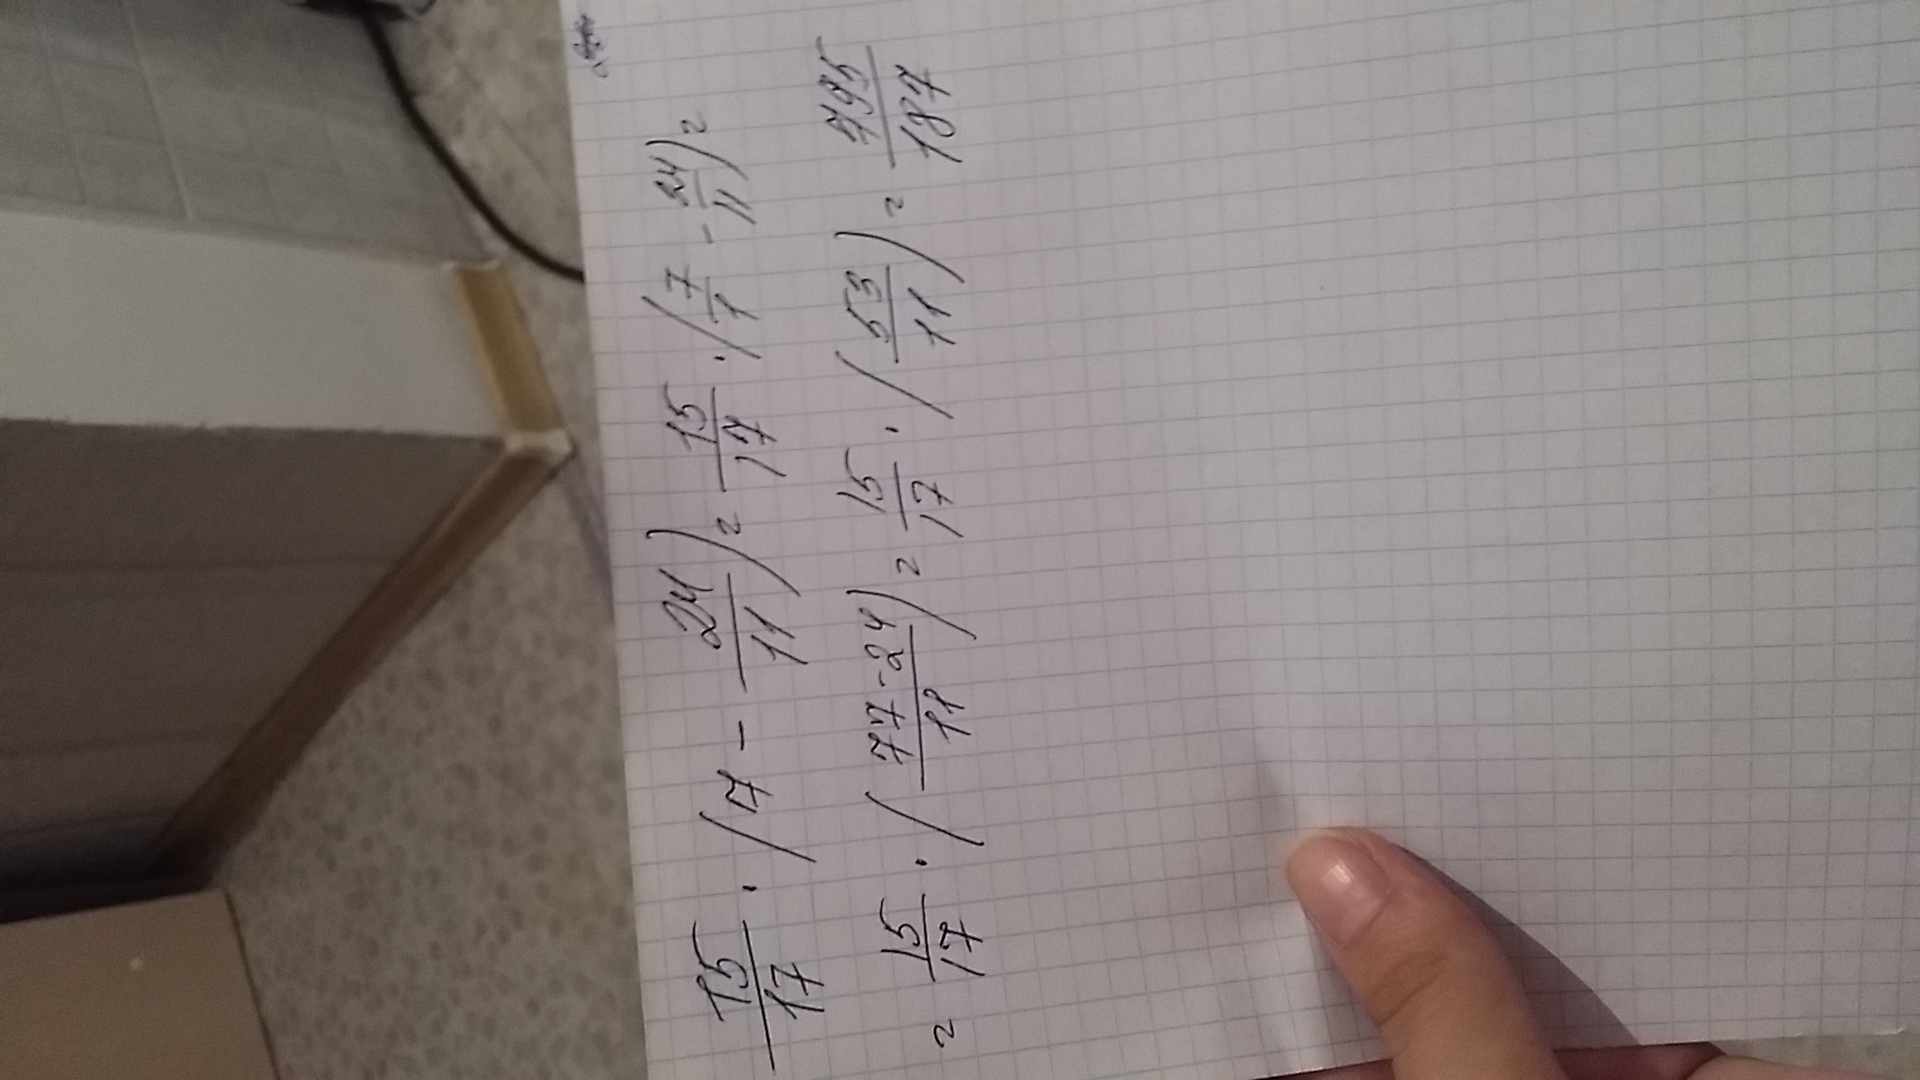 15/17 · (7 - 24/11) = 15/17 · (7/1 - 24/11) =
= 15/17 · (77-24/11) = 15/17 · (53/11) = 795/187